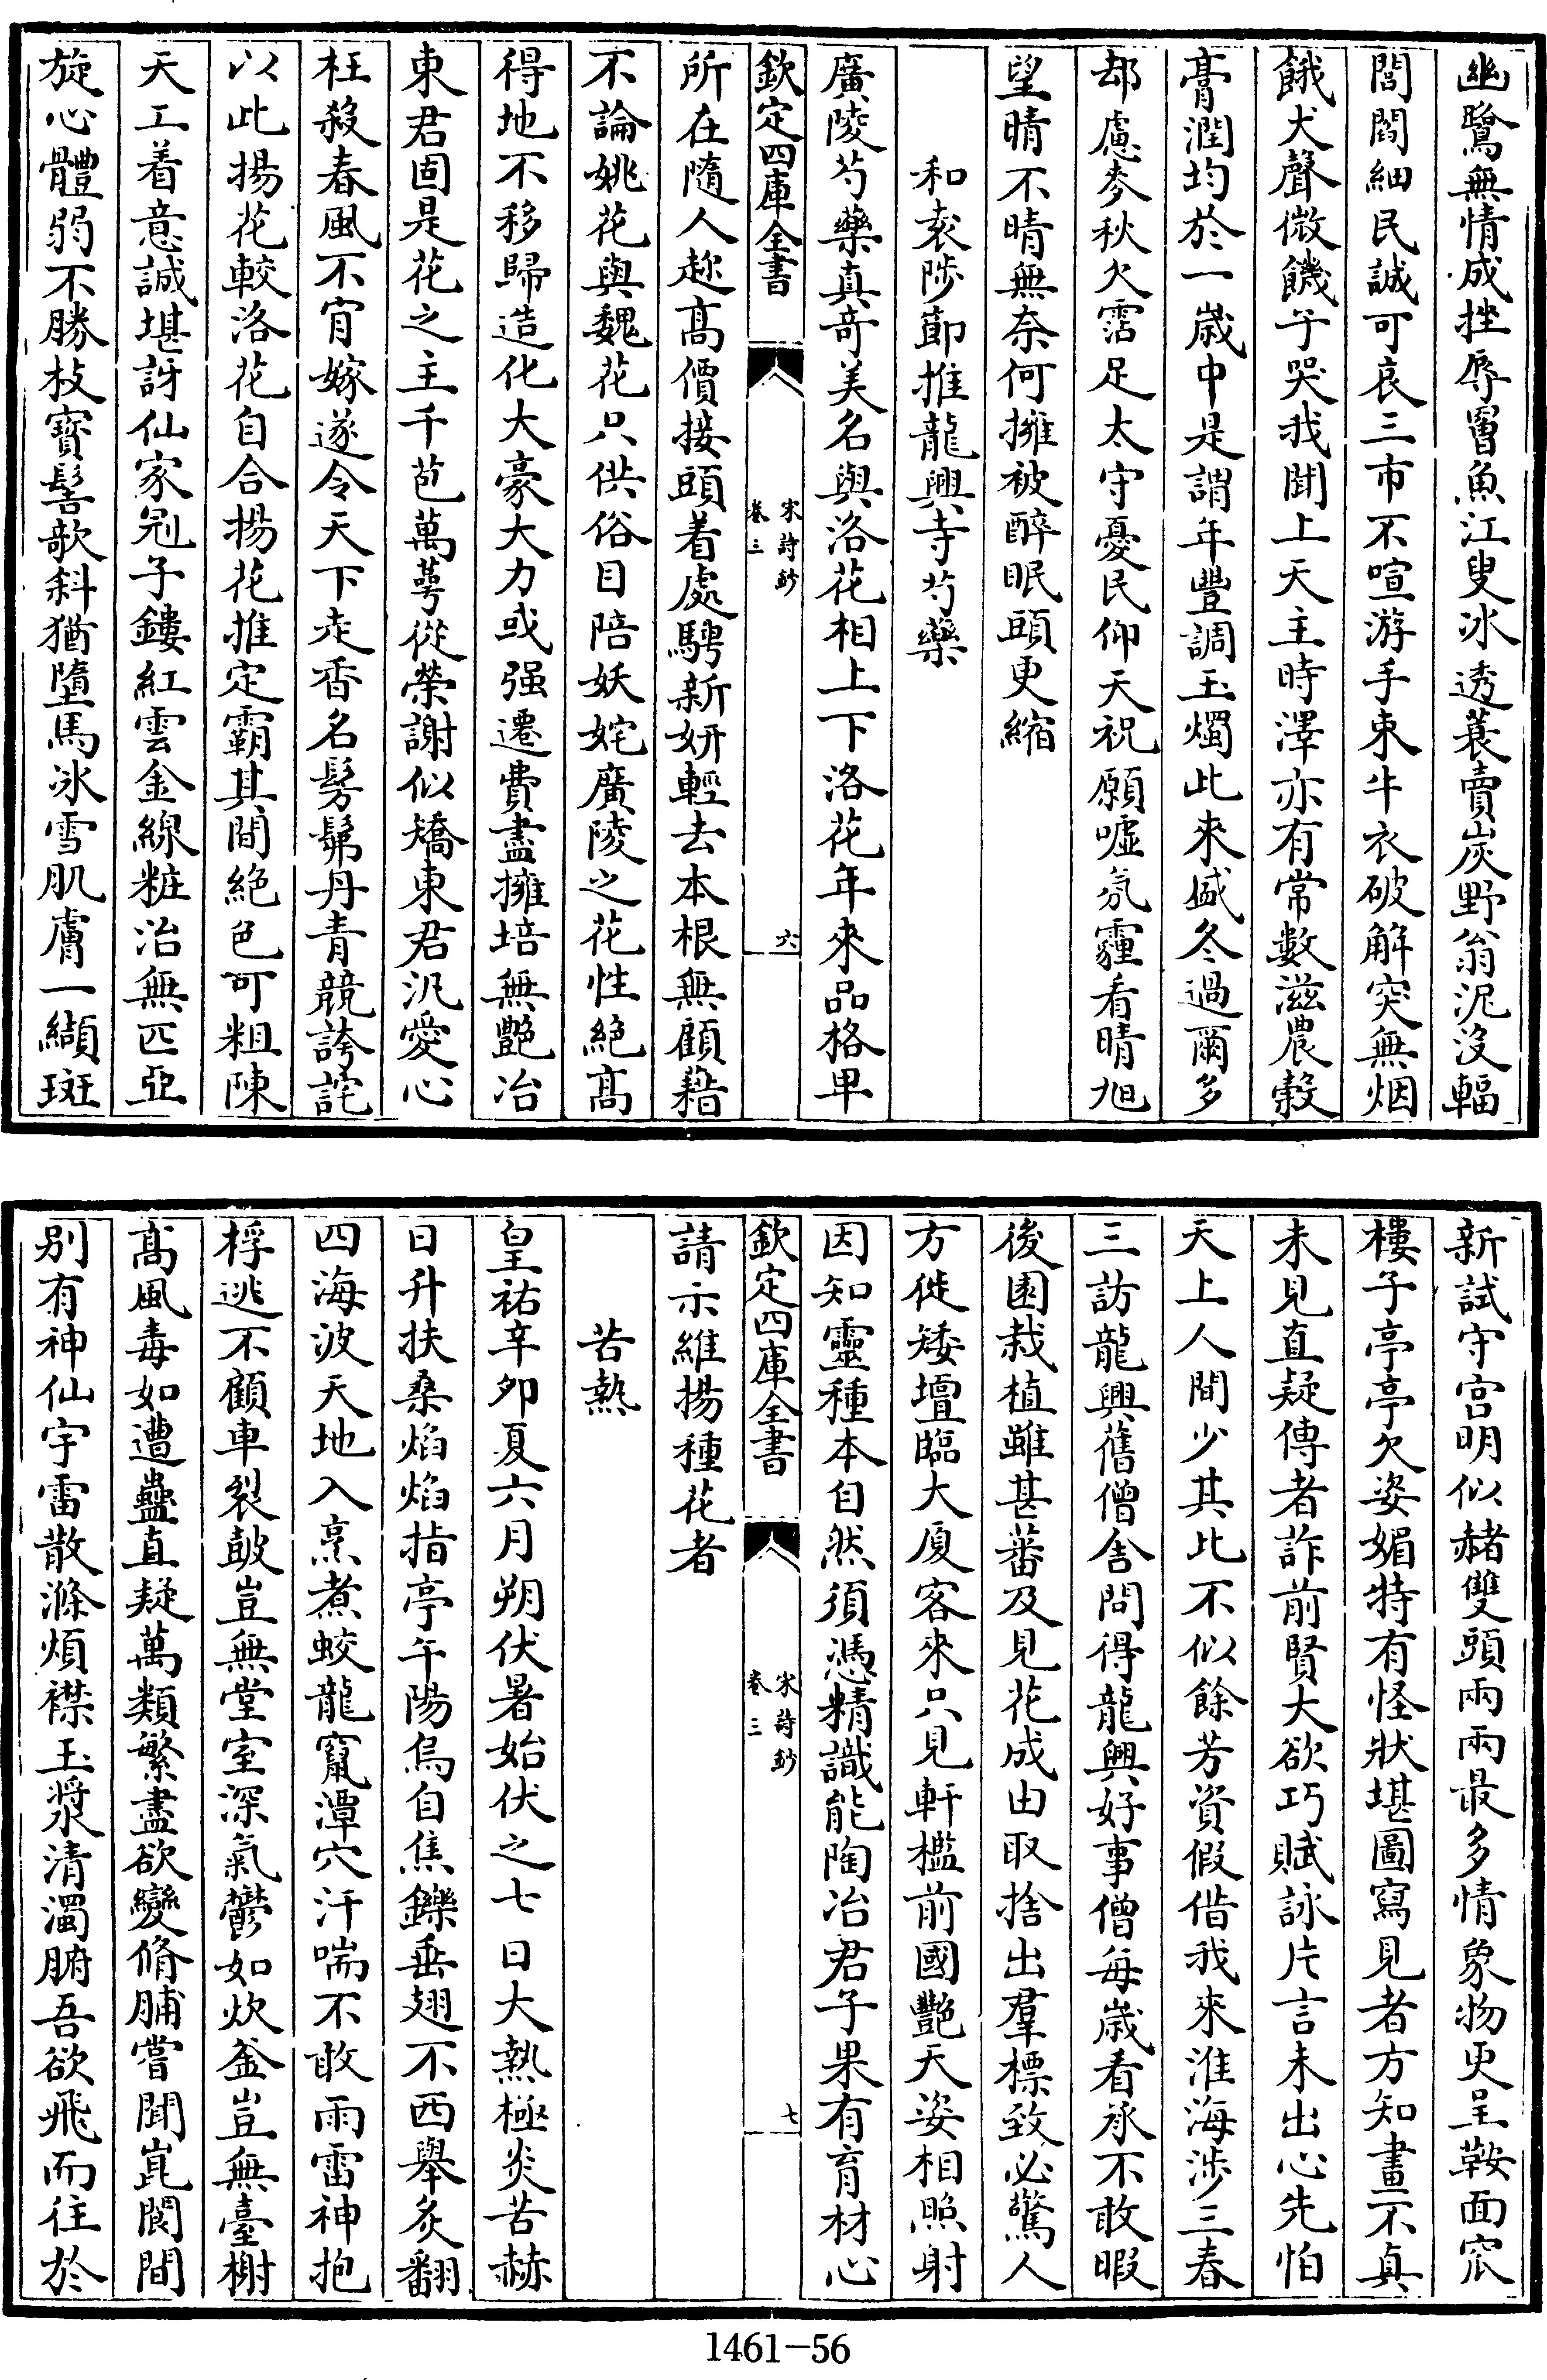 幽鷺無情成挫辱罾魚江叟冰透蓑賣炭野翁泥没輻
閭閻細民誠可哀三市不喧游手束牛衣破解突無烟
餓犬聲微饑子哭我聞上天主時澤亦有常數滋農穀
膏潤均於一歲中是謂年豐調玉燭此來盛冬過爾多
却慮麥秋欠霑足太守憂民仰天祝願噓氛霾看晴旭
望晴不晴無奈何擁被醉眠頭更縮
和袁陟節推龍興寺芍藥
廣陵芍藥真奇美名與洛花相上下洛花年來品格卑
欽定四庫全書
宋詩鈔
卷三
六
所在隨人趂髙價接頭着處騁新妍輕去本根無顧藉
不論姚花與魏花只供俗目陪妖姹廣陵之花性絶髙
得地不移歸造化大豪大力或强遷費盡擁培無艷冶
東君固是花之主千苞萬蕚從榮謝似矯東君汎愛心
枉殺春風不肯嫁遂令天下走香名髣髴丹青競誇詫
以此揚花較洛花自合揚花推定霸其間絶色可粗陳
天工着意誠堪訝仙家冠子鏤紅雲金線粧治無匹亞
旋心體弱不勝枝寳髻欹斜猶墮馬冰雪肌膚一纈斑
新試守宫明似赭雙頭兩兩最多情象物更呈鞍面窊
樓子亭亭欠姿媚特有怪狀堪圖寫見者方知畫不真
未見直疑傳者詐前賢大欲巧賦詠片言未出心先怕
天上人間少其比不似餘芳資假借我來淮海涉三春
三訪龍興舊僧舎問得龍興好事僧每歲看承不敢暇
後園栽植雖甚蕃及見花成由取捨出羣標致必驚人
方徙矮壇臨大厦客來只見軒檻前國艷天姿相照射
因知靈種本自然須憑精識能陶冶君子果有育材心
欽定四庫全書
宋詩鈔
卷三
七
請示維揚種花者
苦熱
皇祐辛卯夏六月朔伏暑始伏之七日大熱極炎苦赫
日升扶桑焰焰指亭午陽烏自焦鑠垂翅不西舉炙翻
四海波天地入烹煮蛟龍竄潭穴汗喘不敢雨雷神抱
桴逃不顧車裂鼓豈無堂室深氣鬱如炊釡豈無臺榭
髙風毒如遭蠱直疑萬類繁盡欲變脩脯嘗聞崑閬間
别有神仙宇雷散滌煩襟玉漿清濁腑吾欲飛而往於
1461-56